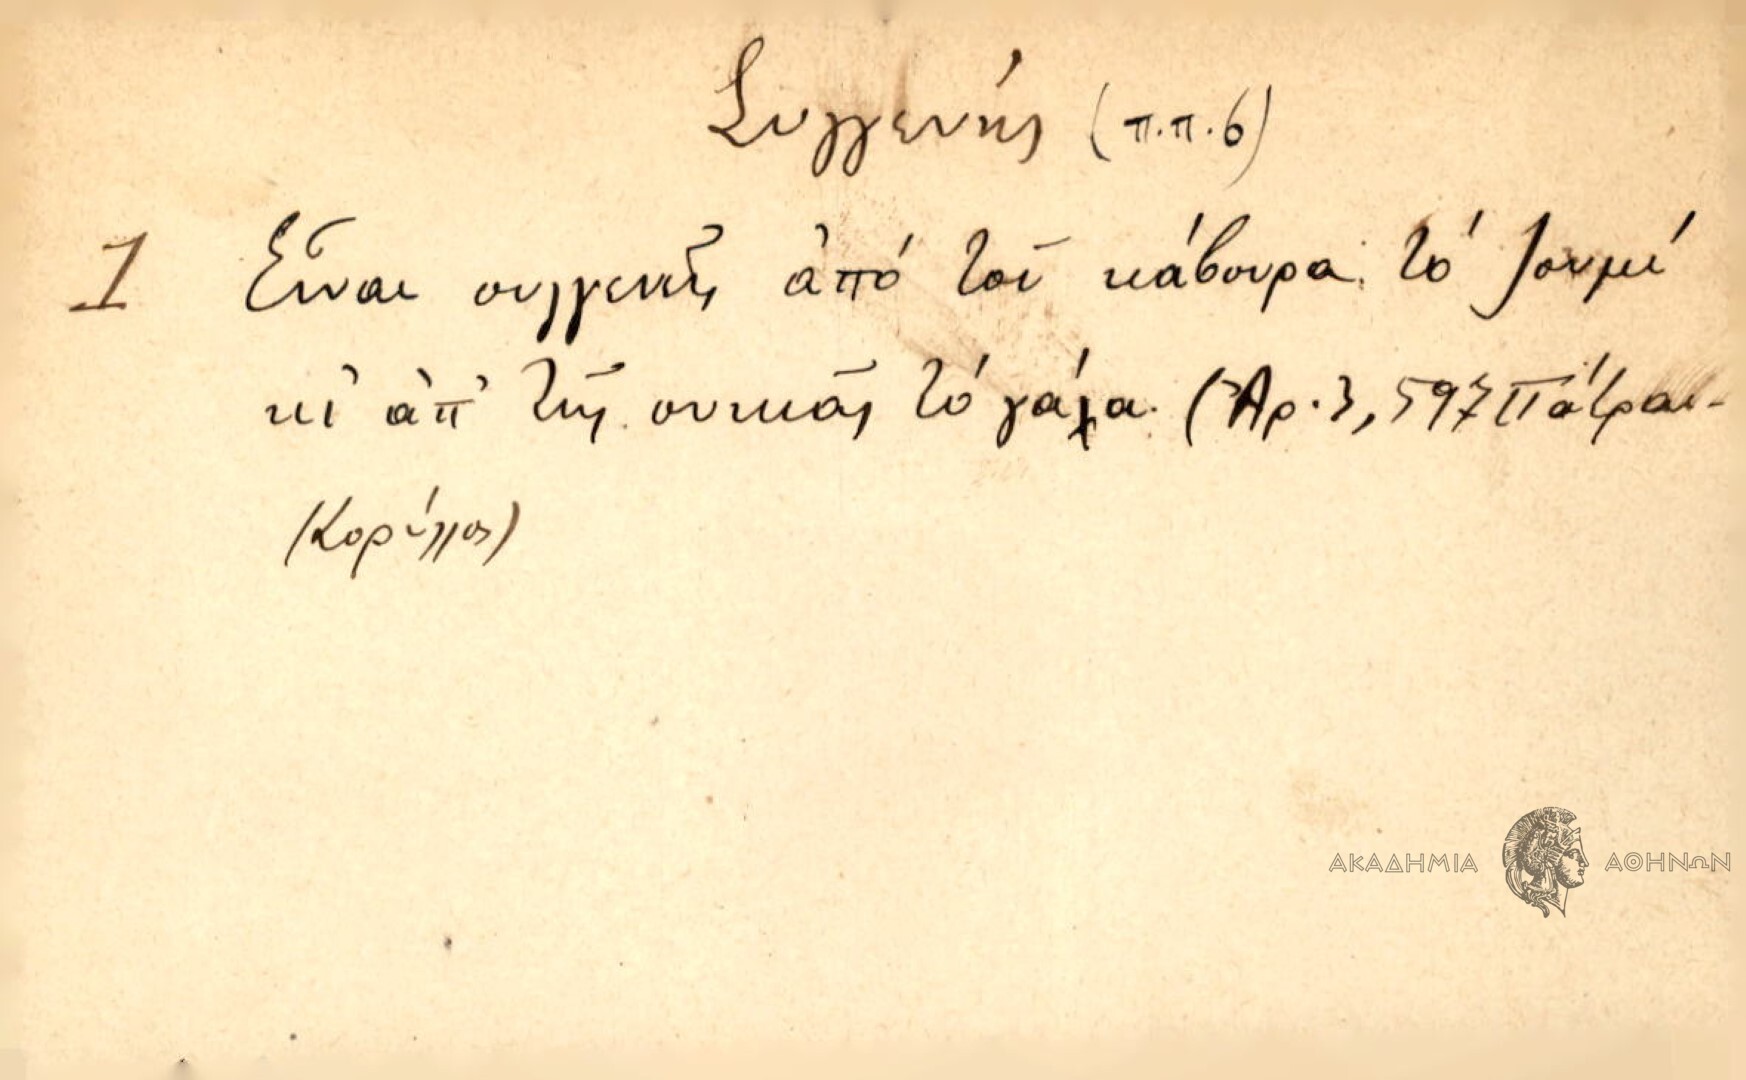 Συγγενής (π.π.6)
1 Εἶναι συγγενὴς ἀπό τοῦ κάβουρα τό ζουμί
κι' ἀπ' τῆς συκιᾶς τό γάλα. (Ἀρ. 3, 597 Πάτραι-
(Κορύλλος)
ΑΚΑΔΗΜΙΑ ΑΘΗΝΩΝ